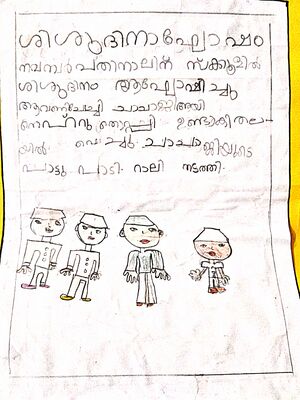 ശിശുദിനാഘോഷം
നവമ്പർ പതിനാലിന് സ്ക്കൂളിൽ
ശിശുദിനം ആഘോഷിച്ചു
ആവണിചേച്ചി ചാചാജി
നെഹ്റു തൊപ്പി ഉണ്ടാകി തല-
യിൽ വെച്ചു. ചാചാജിയുടെ
പാട്ടു പാടി. റാലി നടത്തി.